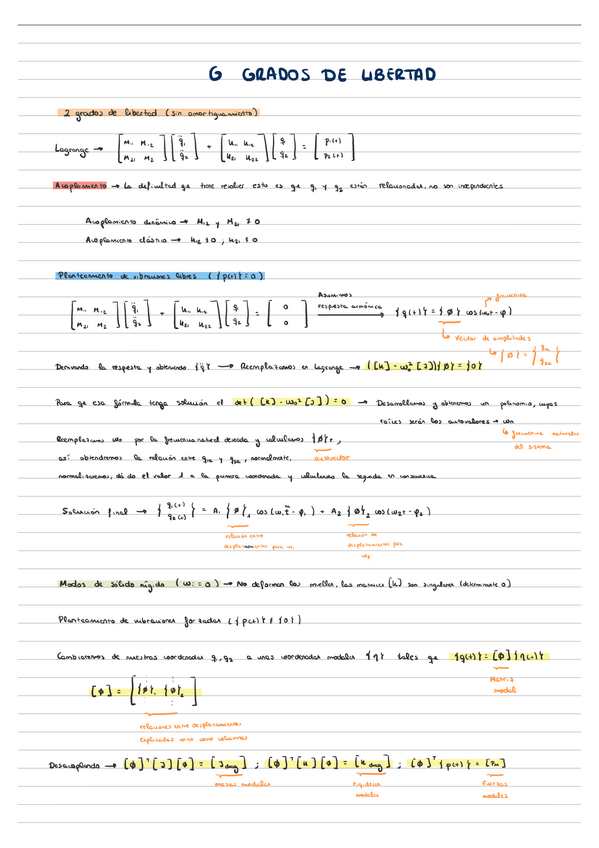 6 GRADOS DE LIBERTAD
2 grados de libertad (sin amortiguamiento)
Lagrange → [M₁₁ M₁₂ / M₂₁ M₂₂][q̈₁ / q̈₂] + [K₁₁ K₁₂ / K₂₁ K₂₂][q₁ / q₂] = [P₁(t) / P₂(t)]
Acoplamiento → La dificultad qe tiene resolver esto es qe q₁ y q₂ están relacionadas, no son independientes
Acoplamiento dinámico → M₁₂ y M₂₁ ≠ 0
Acoplamiento elástico → K₁₂ ≠ 0, K₂₁ ≠ 0
Planteamiento de vibraciones libres ({p(t)} = 0)
[M₁₁ M₁₂ / M₂₁ M₂₂][q̈₁ / q̈₂] + [K₁₁ K₁₂ / K₂₁ K₂₂][q₁ / q₂] = [0 / 0] Asumimos respuesta armónica → {q(t)} = {Ø} cos(ωt - φ)
frecuencia
Vector de amplitudes
Derivando la respuesta y obteniendo {q̈} → Reemplazamos en Lagrange → ([K] - ω₀² [J]){Ø} = {0}
Para qe esa fórmula tenga solución el det([K] - ω₀² [J]) = 0 → Desarrollamos y obtenemos un polinomio, cuyas
raíces serán los autovalores → ωn
frecuencias naturales
del sistema
Reemplazamos ω₀ por la frecuencia natural deseada y calculamos {Ø}ᵢ,
autovector
así obtendremos la relación entre q₁ₐ y q₂ₐ, normalmente,
normalizaremos, dando el valor 1 a la primera coordenada y calculando la segunda en consecuencia
Solución final → {q₁(t) / q₂(t)} = A₁ {Ø}₁ cos(ω₁t - φ₁) + A₂ {Ø}₂ cos(ω₂t - φ₂)
relación entre
desplazamientos para ω₁
relación de
desplazamientos para
ω₂
Modos de sólido rígido (ωᵢ = 0) → No deforman los muelles, las matrices [K] son singulares (determinante 0)
Planteamiento de vibraciones forzadas ({p(t)} ≠ {0})
Cambiaremos de nuestras coordenadas q₁, q₂ a unas coordenadas modales {η} tales qe {q(t)} = [Ø]{η(t)}
Matriz
modal
[Ø] = [{Ø}₁ {Ø}₂]
relaciones entre desplazamientos
Explicadas antes como columnas
Desacoplando → [Ø]ᵀ[J][Ø] = [J diag]; [Ø]ᵀ[K][Ø] = [K diag]; [Ø]ᵀ{p(t)} = [Pn]
masas modales
rigideces
modales
Fuerzas
modales